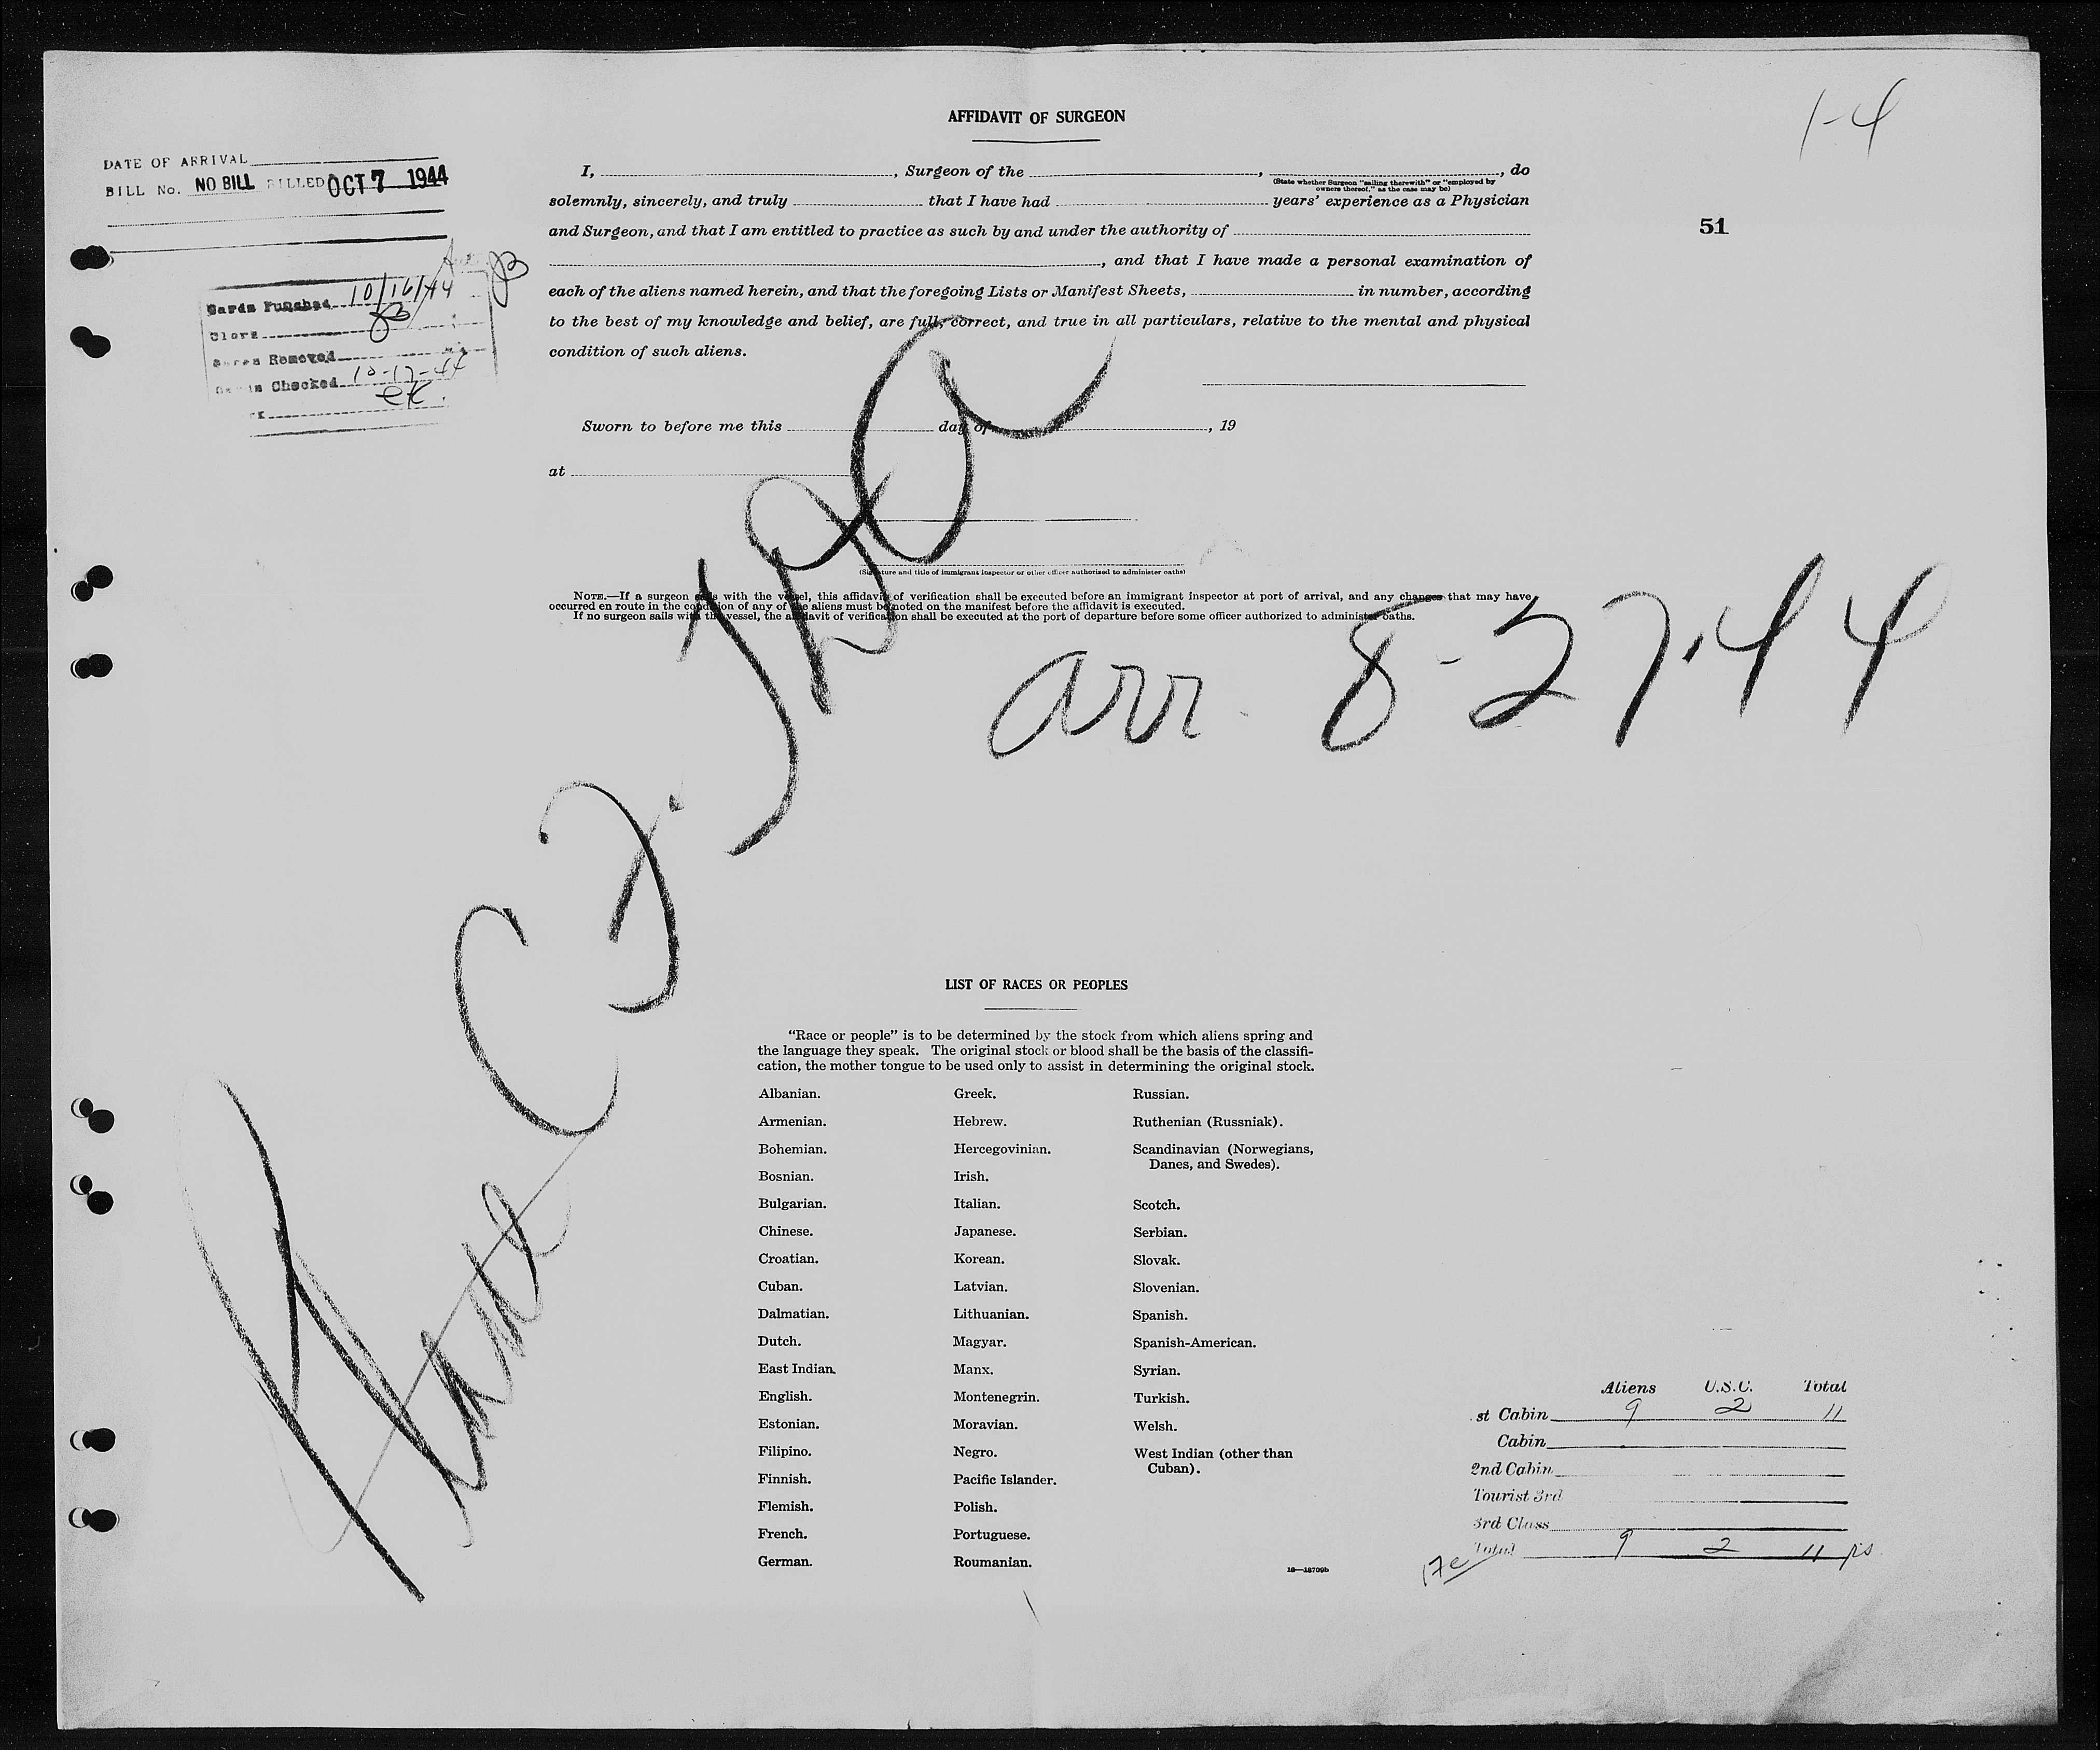 1-4
AFFIDAVIT OF SURGEON
DATE OF ARRIVAL
BILL No. NO BILL BILLED OCT 7 1944
51
I, , Surgeon of the , , do
(State whether Surgeon "sailing therewith" or "employed by owners thereof," as the case may be)
solemnly, sincerely, and truly that I have had years' experience as a Physician
and Surgeon, and that I am entitled to practice as such by and under the authority of
, and that I have made a personal examination of
each of the aliens named herein, and that the foregoing Lists or Manifest Sheets, in number, according
to the best of my knowledge and belief, are full, correct, and true in all particulars, relative to the mental and physical
condition of such aliens.
Cards Punched 10/16/44
Removed
Checked 10-17-44
Sworn to before me this day of , 19
at
(Signature and title of immigrant inspector or other officer authorized to administer oaths)
NOTE.—If a surgeon sails with the vessel, this affidavit of verification shall be executed before an immigrant inspector at port of arrival, and any changes that may have
occurred en route in the condition of any of the aliens must be noted on the manifest before the affidavit is executed.
If no surgeon sails with the vessel, the affidavit of verification shall be executed at the port of departure before some officer authorized to administer oaths.
arr. 8-27-44
LIST OF RACES OR PEOPLES
"Race or people" is to be determined by the stock from which aliens spring and
the language they speak. The original stock or blood shall be the basis of the classifi-
cation, the mother tongue to be used only to assist in determining the original stock.
Albanian.
Armenian.
Bohemian.
Bosnian.
Bulgarian.
Chinese.
Croatian.
Cuban.
Dalmatian.
Dutch.
East Indian.
English.
Estonian.
Filipino.
Finnish.
Flemish.
French.
German.
Greek.
Hebrew.
Hercegovinian.
Irish.
Italian.
Japanese.
Korean.
Latvian.
Lithuanian.
Magyar.
Manx.
Montenegrin.
Moravian.
Negro.
Pacific Islander.
Polish.
Portuguese.
Roumanian.
Russian.
Ruthenian (Russniak).
Scandinavian (Norwegians,
Danes, and Swedes).
Scotch.
Serbian.
Slovak.
Slovenian.
Spanish.
Spanish-American.
Syrian.
Turkish.
Welsh.
West Indian (other than
Cuban).
16—18709b
Aliens U.S.C. Total
st Cabin 9 2 11
Cabin
2nd Cabin
Tourist 3rd
3rd Class
Total 9 2 11